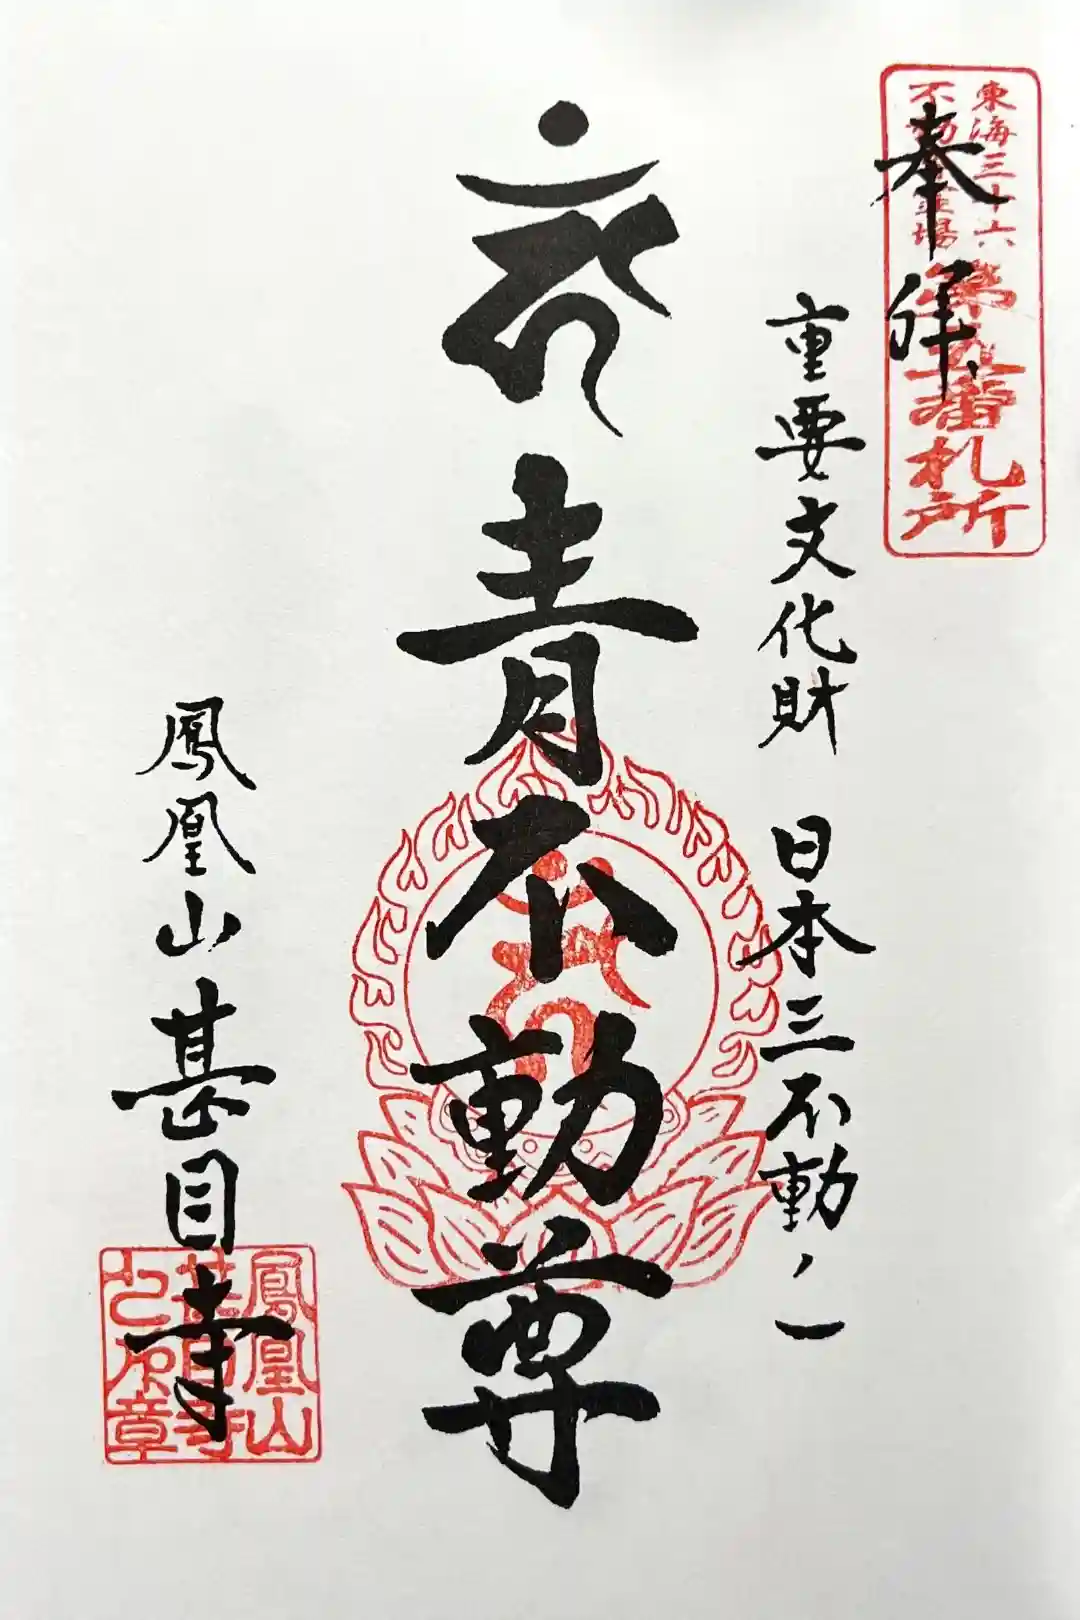 東海三十六
不動尊霊場
第五番札所
奉拝
重要文化財 日本三不動ノ一
青不動尊
鳳凰山甚目寺
鳳凰山
甚目寺
之印章